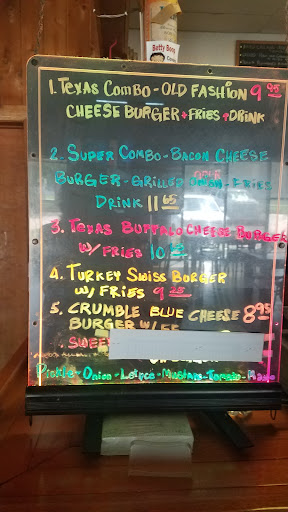 Betty Boop
1. TEXAS COMBO - OLD FASHION 9 95
CHEESE BURGER + FRIES + DRINK
2. SUPER COMBO - BACON CHEESE
BURGER - GRILLED ONION - FRIES
DRINK 11 65
3. TEXAS BUFFALO CHEESE BURGER
W/ FRIES 10
4. TURKEY SWISS BURGER
W/ FRIES 9
5. CRUMBLE BLUE CHEESE 8 95
BURGER W/
SWEET
Pickle - Onion - Mustard - Tomato - Mayo